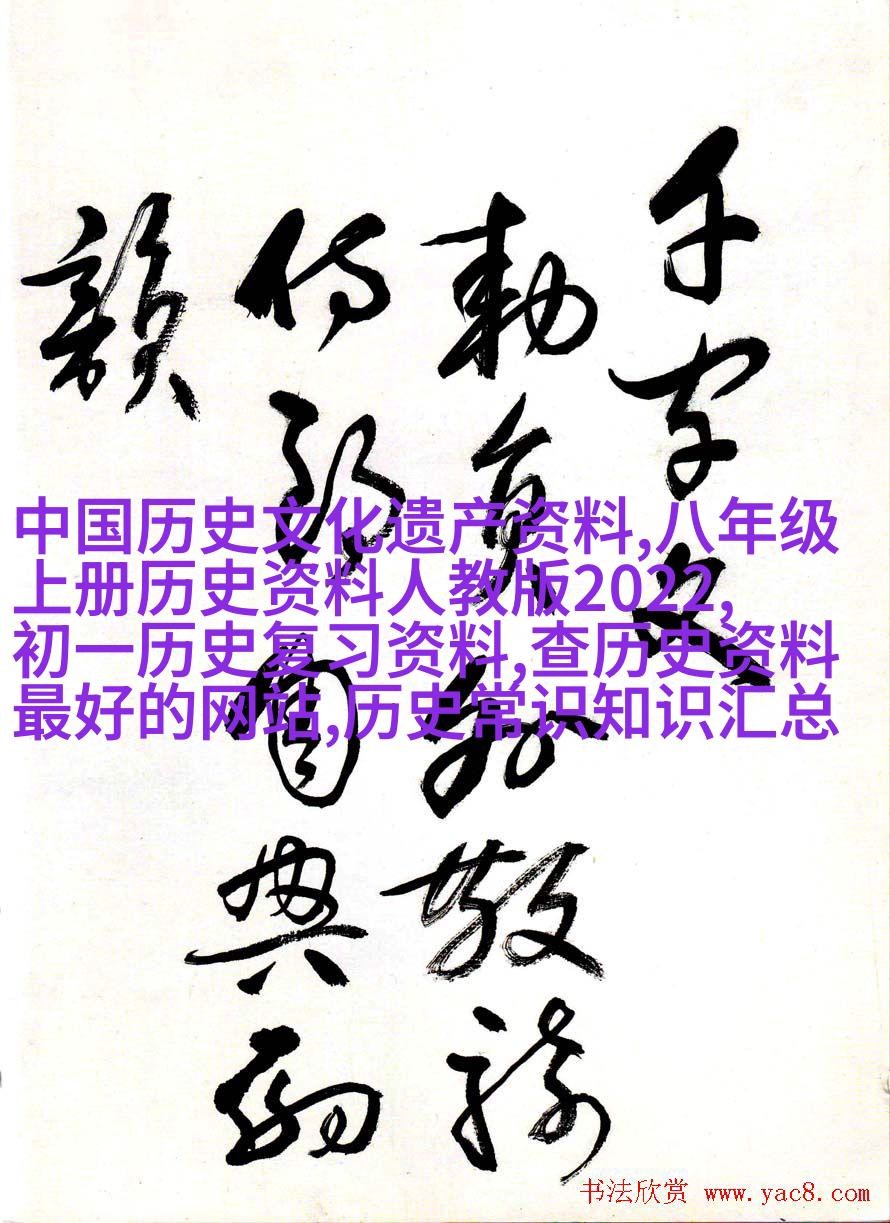 千字文
勅員外散騎
侍郎周興嗣
韻
中国历史文化遗产资料,八年级
上册历史资料人教版2022,
初一历史复习资料,查历史资料
最好的网站,历史常识知识汇总
书法欣赏 www.yac8.com